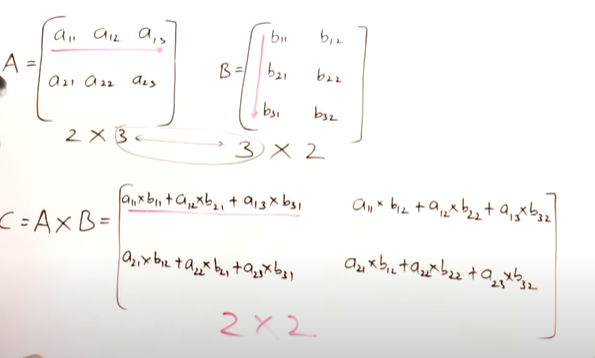 A = [a₁₁ a₁₂ a₁₃
a₂₁ a₂₂ a₂₃]
2 × 3
B = [b₁₁ b₁₂
b₂₁ b₂₂
b₃₁ b₃₂]
3 × 2
C = A × B = [a₁₁×b₁₁ + a₁₂×b₂₁ + a₁₃×b₃₁ a₁₁×b₁₂ + a₁₂×b₂₂ + a₁₃×b₃₂
a₂₁×b₁₂ + a₂₂×b₂₁ + a₂₃×b₃₁ a₂₁×b₁₂ + a₂₂×b₂₂ + a₂₃×b₃₂]
2 × 2